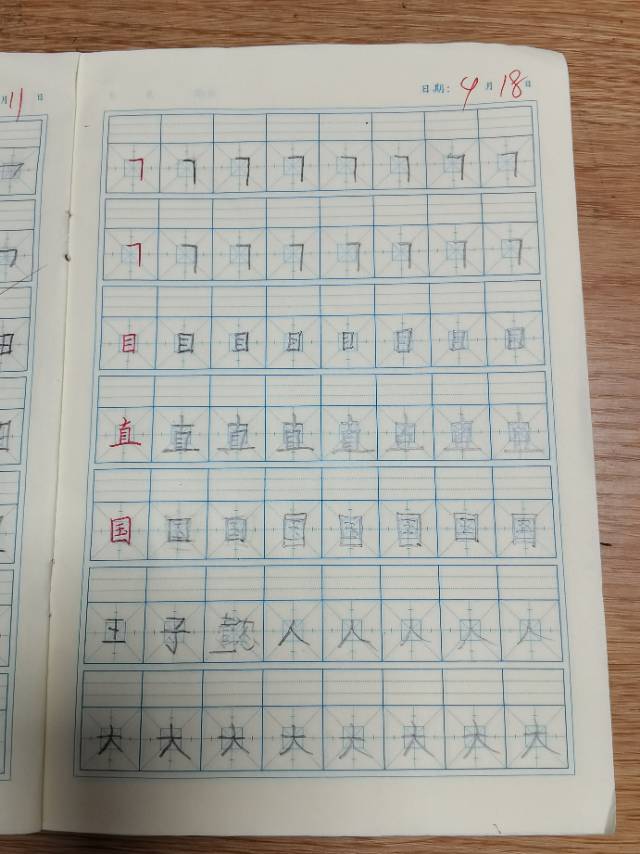 月11日
日期: 4月18日
㇕ ㇕ ㇕ ㇕ ㇕ ㇕ ㇕ ㇕
㇕ ㇕ ㇕ ㇕ ㇕ ㇕ ㇕ ㇕
目 目 目 目 目 目 目 目
直 直 直 直 直 直 直 直
国 国 国 国 国 国 国 国
王 子 懿 人 人 人 人 人
大 大 大 大 大 大 大 大